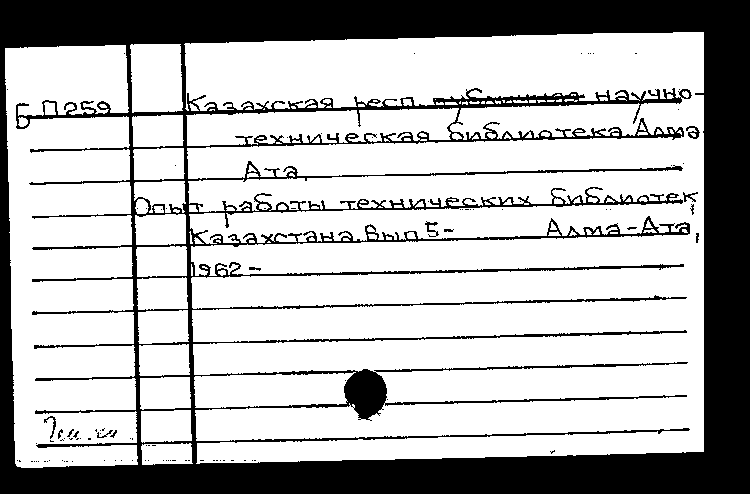 Б П259 Казахская респ. публичная научно-
техническая библиотека. Алма-
Ата.
Опыт работы технических библиотек
Казахстана. Вып. 5- Алма-Ата,
1962-